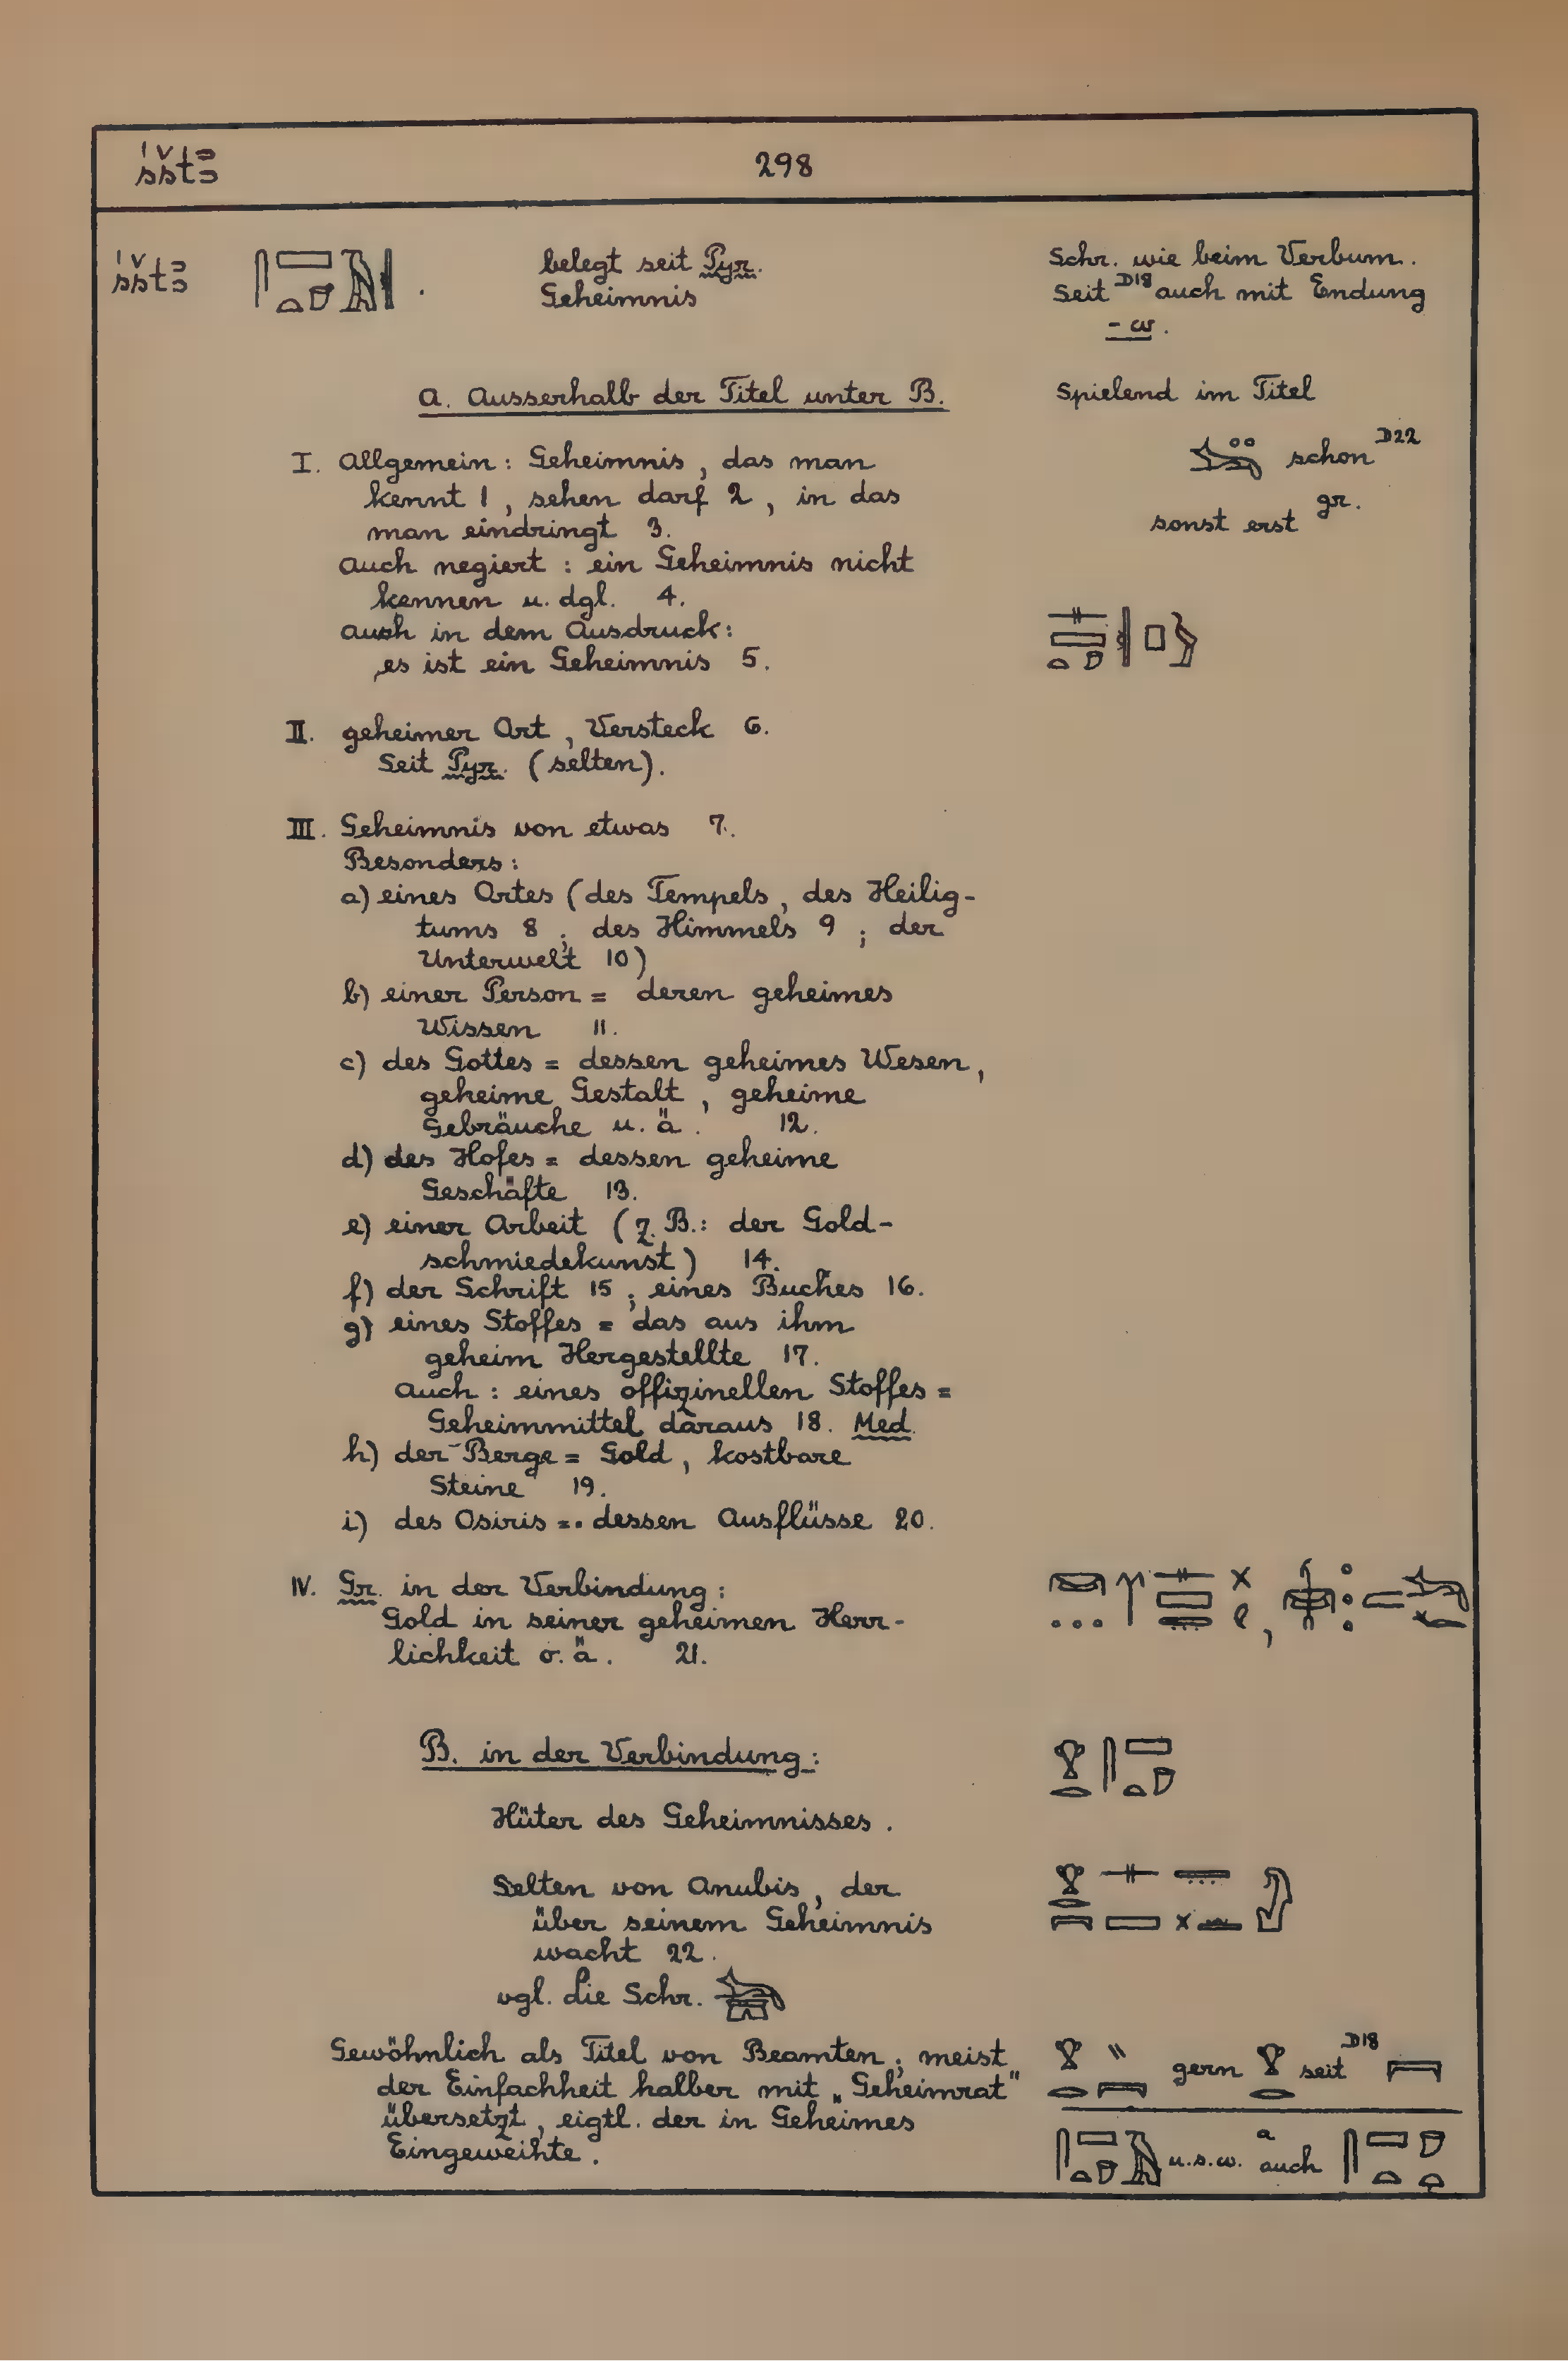 śštꜣ
298
śštꜣ
belegt seit Pyr.
Geheimnis
Schr. wie beim Verbum.
Seit D18 auch mit Endung
- w.
A. Ausserhalb der Titel unter B.
Spielend im Titel
schon D22
sonst erst gr.
I. Allgemein: Geheimnis, das man
kennt 1, sehen darf 2, in das
man eindringt 3.
Auch negiert: ein Geheimnis nicht
kennen u. dgl. 4.
Auch in dem Ausdruck:
es ist ein Geheimnis 5.
II. geheimer Ort, Versteck 6.
Seit Pyr. (selten).
III. Geheimnis von etwas 7.
Besonders:
a) eines Ortes (des Tempels, des Heilig-
tums 8; des Himmels 9; der
Unterwelt 10)
b) einer Person = deren geheimes
Wissen 11.
c) des Gottes = dessen geheimes Wesen,
geheime Gestalt, geheime
Gebräuche u. ä. 12.
d) des Hofes = dessen geheime
Geschäfte 13.
e) einer Arbeit (z. B.: der Gold-
schmiedekunst) 14.
f) der Schrift 15; eines Buches 16.
g) eines Stoffes = das aus ihm
geheim Hergestellte 17.
Auch: eines offizinellen Stoffes =
Geheimmittel daraus 18. Med.
h) der Berge = Gold, kostbare
Steine 19.
i) des Osiris = dessen Ausflüsse 20.
IV. Gr. in der Verbindung:
Gold in seiner geheimen Herr-
lichkeit o. ä. 21.
B. in der Verbindung:
Hüter des Geheimnisses.
Selten von Anubis, der
über seinem Geheimnis
wacht 22.
vgl. die Schr.
Gewöhnlich als Titel von Beamten; meist
der Einfachheit halber mit „Geheimrat"
übersetzt, eigtl. der in Geheimes
Eingeweihte.
gern seit D18
u.s.w. auch a